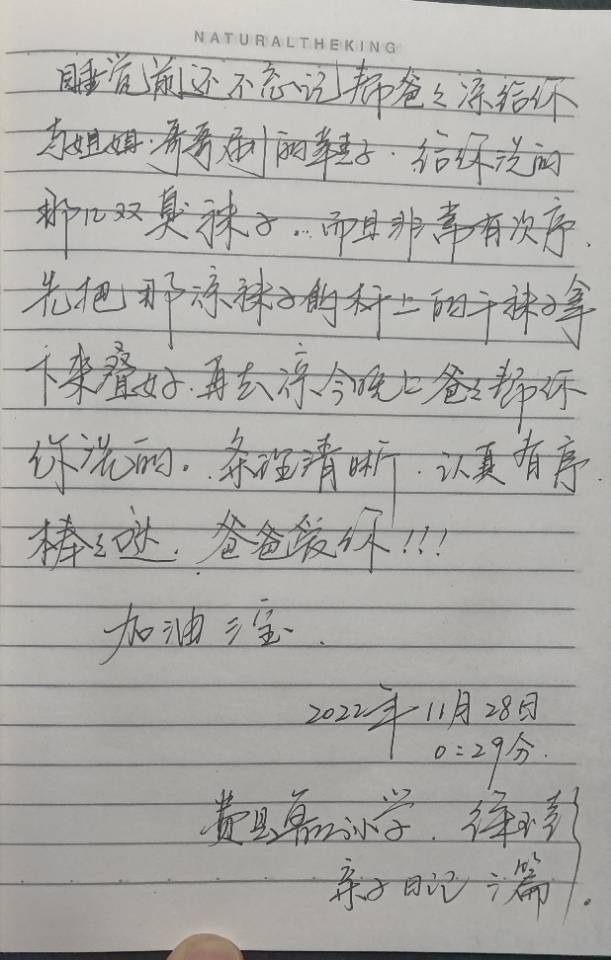 NATURALTHEKING
睡觉前还不忘记帮爸爸凉给你
与姐姐.哥哥刷的鞋子.给你洗的
那几双臭袜子...而且非常有次序.
先把那凉袜子的杆上的干袜子拿
下来叠好.再去凉今晚上爸爸帮你
你洗的。条理清晰.认真有序
棒棒哒.爸爸爱你!!!
加油三宝.
2022年11月28日
0:29分.
费县 小学.徐玉彭
亲子日记 篇.